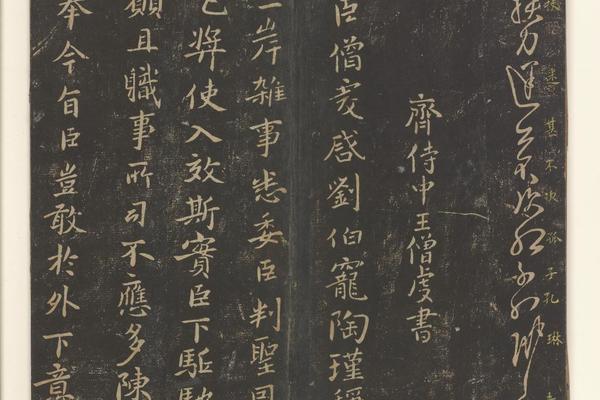 不次孤子孔琳
扶力
齊侍中王僧虔書
臣僧虔啓劉伯寵陶瑾
一岸雜事悉委臣判聖
已獎使入效斯實臣下駈
願且職事所司不應多陳
奉今旨臣豈敢於外下